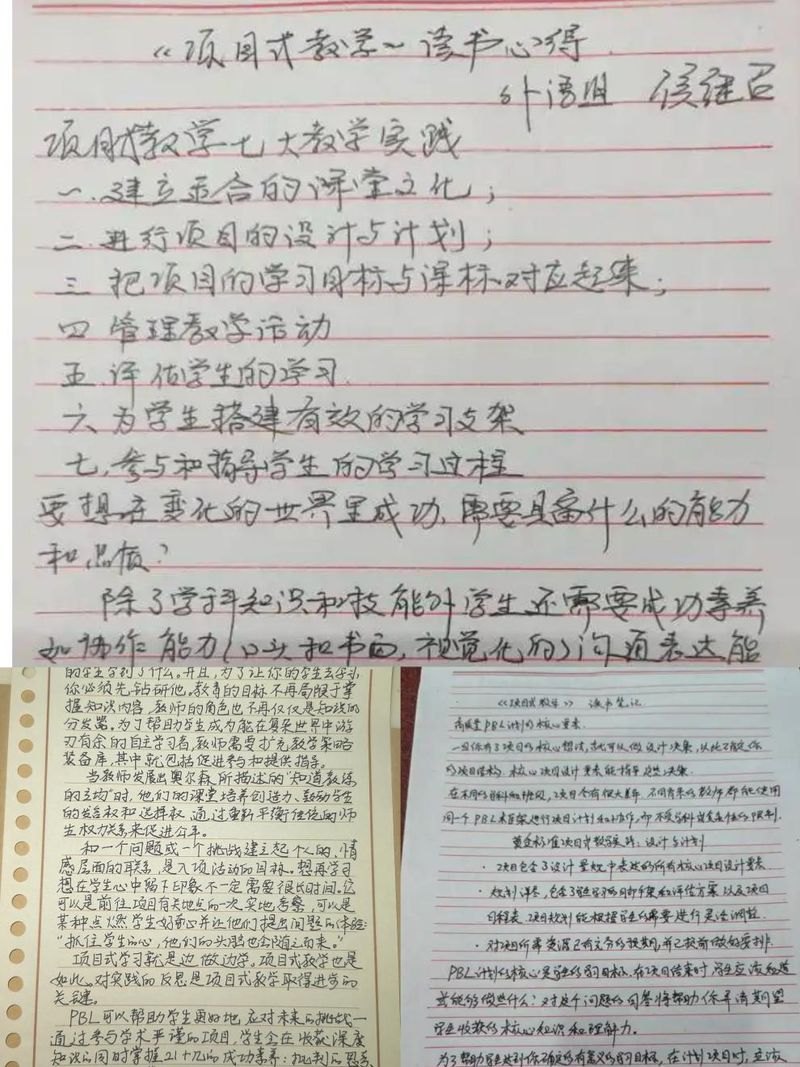 《项目式教学》读书心得
外语组 侯继召
项目式教学七大教学实践
一.建立适合的课堂文化；
二.进行项目的设计与计划；
三 把项目的学习目标与课标对应起来；
四 管理教学活动
五.评估学生的学习.
六 为学生搭建有效的学习支架
七.参与和指导学生的学习过程
要想在变化的世界里成功,需要具备什么的能力
和品质？
除了学科知识和技能外学生还需要成功素养
如协作能力(口头和书面,视觉化的)沟通表达能
的学生学到了什么。并且,为了让你的学生去学习,
你必须先钻研他。教育的目标不再局限于掌
握知识内容,教师的角色也不再仅仅是知识的
分发器。为了帮助学生成为能在复杂世界中游
刃有余的自主学习者,教师需要扩充教学策略
装备库,其中就包括促进参与和提供指导。
当教师发展出奥尔森所描述的“知道教练
的主场”时,他们的课堂培养创造力、鼓动学生
的发言权和选择权,通过重新平衡传统的师
生权力关系来促进公平。
和一个问题或一个挑战建立起个人的、情
感层面的联系,是入项活动的目标。想要学习
想在学生心中留下印象不一定需要很长时间。它
可以是前往项目有关地点的一次实地考察,可以是
某种点燃学生好奇心并让他们提出问题的体验:
“抓住学生的心,他们的头脑也会随之而来。”
项目式学习就是边做边学。项目式教学也是
如此。对实践的反思是项目式教学取得进步的
关键。
PBL可以帮助学生更好地应对未来的挑战—
通过参与学术严谨的项目,学生会在收获深度
知识的同时掌握21世纪的成功素养:批判性思考
《项目式教学》 读书笔记
高质量PBL计划的核心要素.
一旦你有了项目的核心想法,就可以做设计决策,从而确定你
的项目结构.核心项目设计要素能指导这些决策.
在不同的学科和班级,项目会有很大差异.不同背景的教师都能使用
同一个PBL来框架进行项目计划和协作,而不受学科或者条件的限制.
黄金标准项目式教学实践:设计与计划
· 项目包含了设计量规中表述的所有核心项目设计要素
· 规划详尽,包含了学生学习的脚手架和评估方案以及项目
日程表.项目规划能根据学生的需要进行灵活调整.
· 对项目所需资源已有充分的预期,并已提前做好安排.
PBL计划的核心是学生的学习目标.在项目结束时,学生应该知道
或能够做些什么?对这个问题的回答将帮助你弄清期望
学生收获的核心知识和理解力.
为了帮助学生达到你确定的有意义的学习目标,在计划项目时,应该